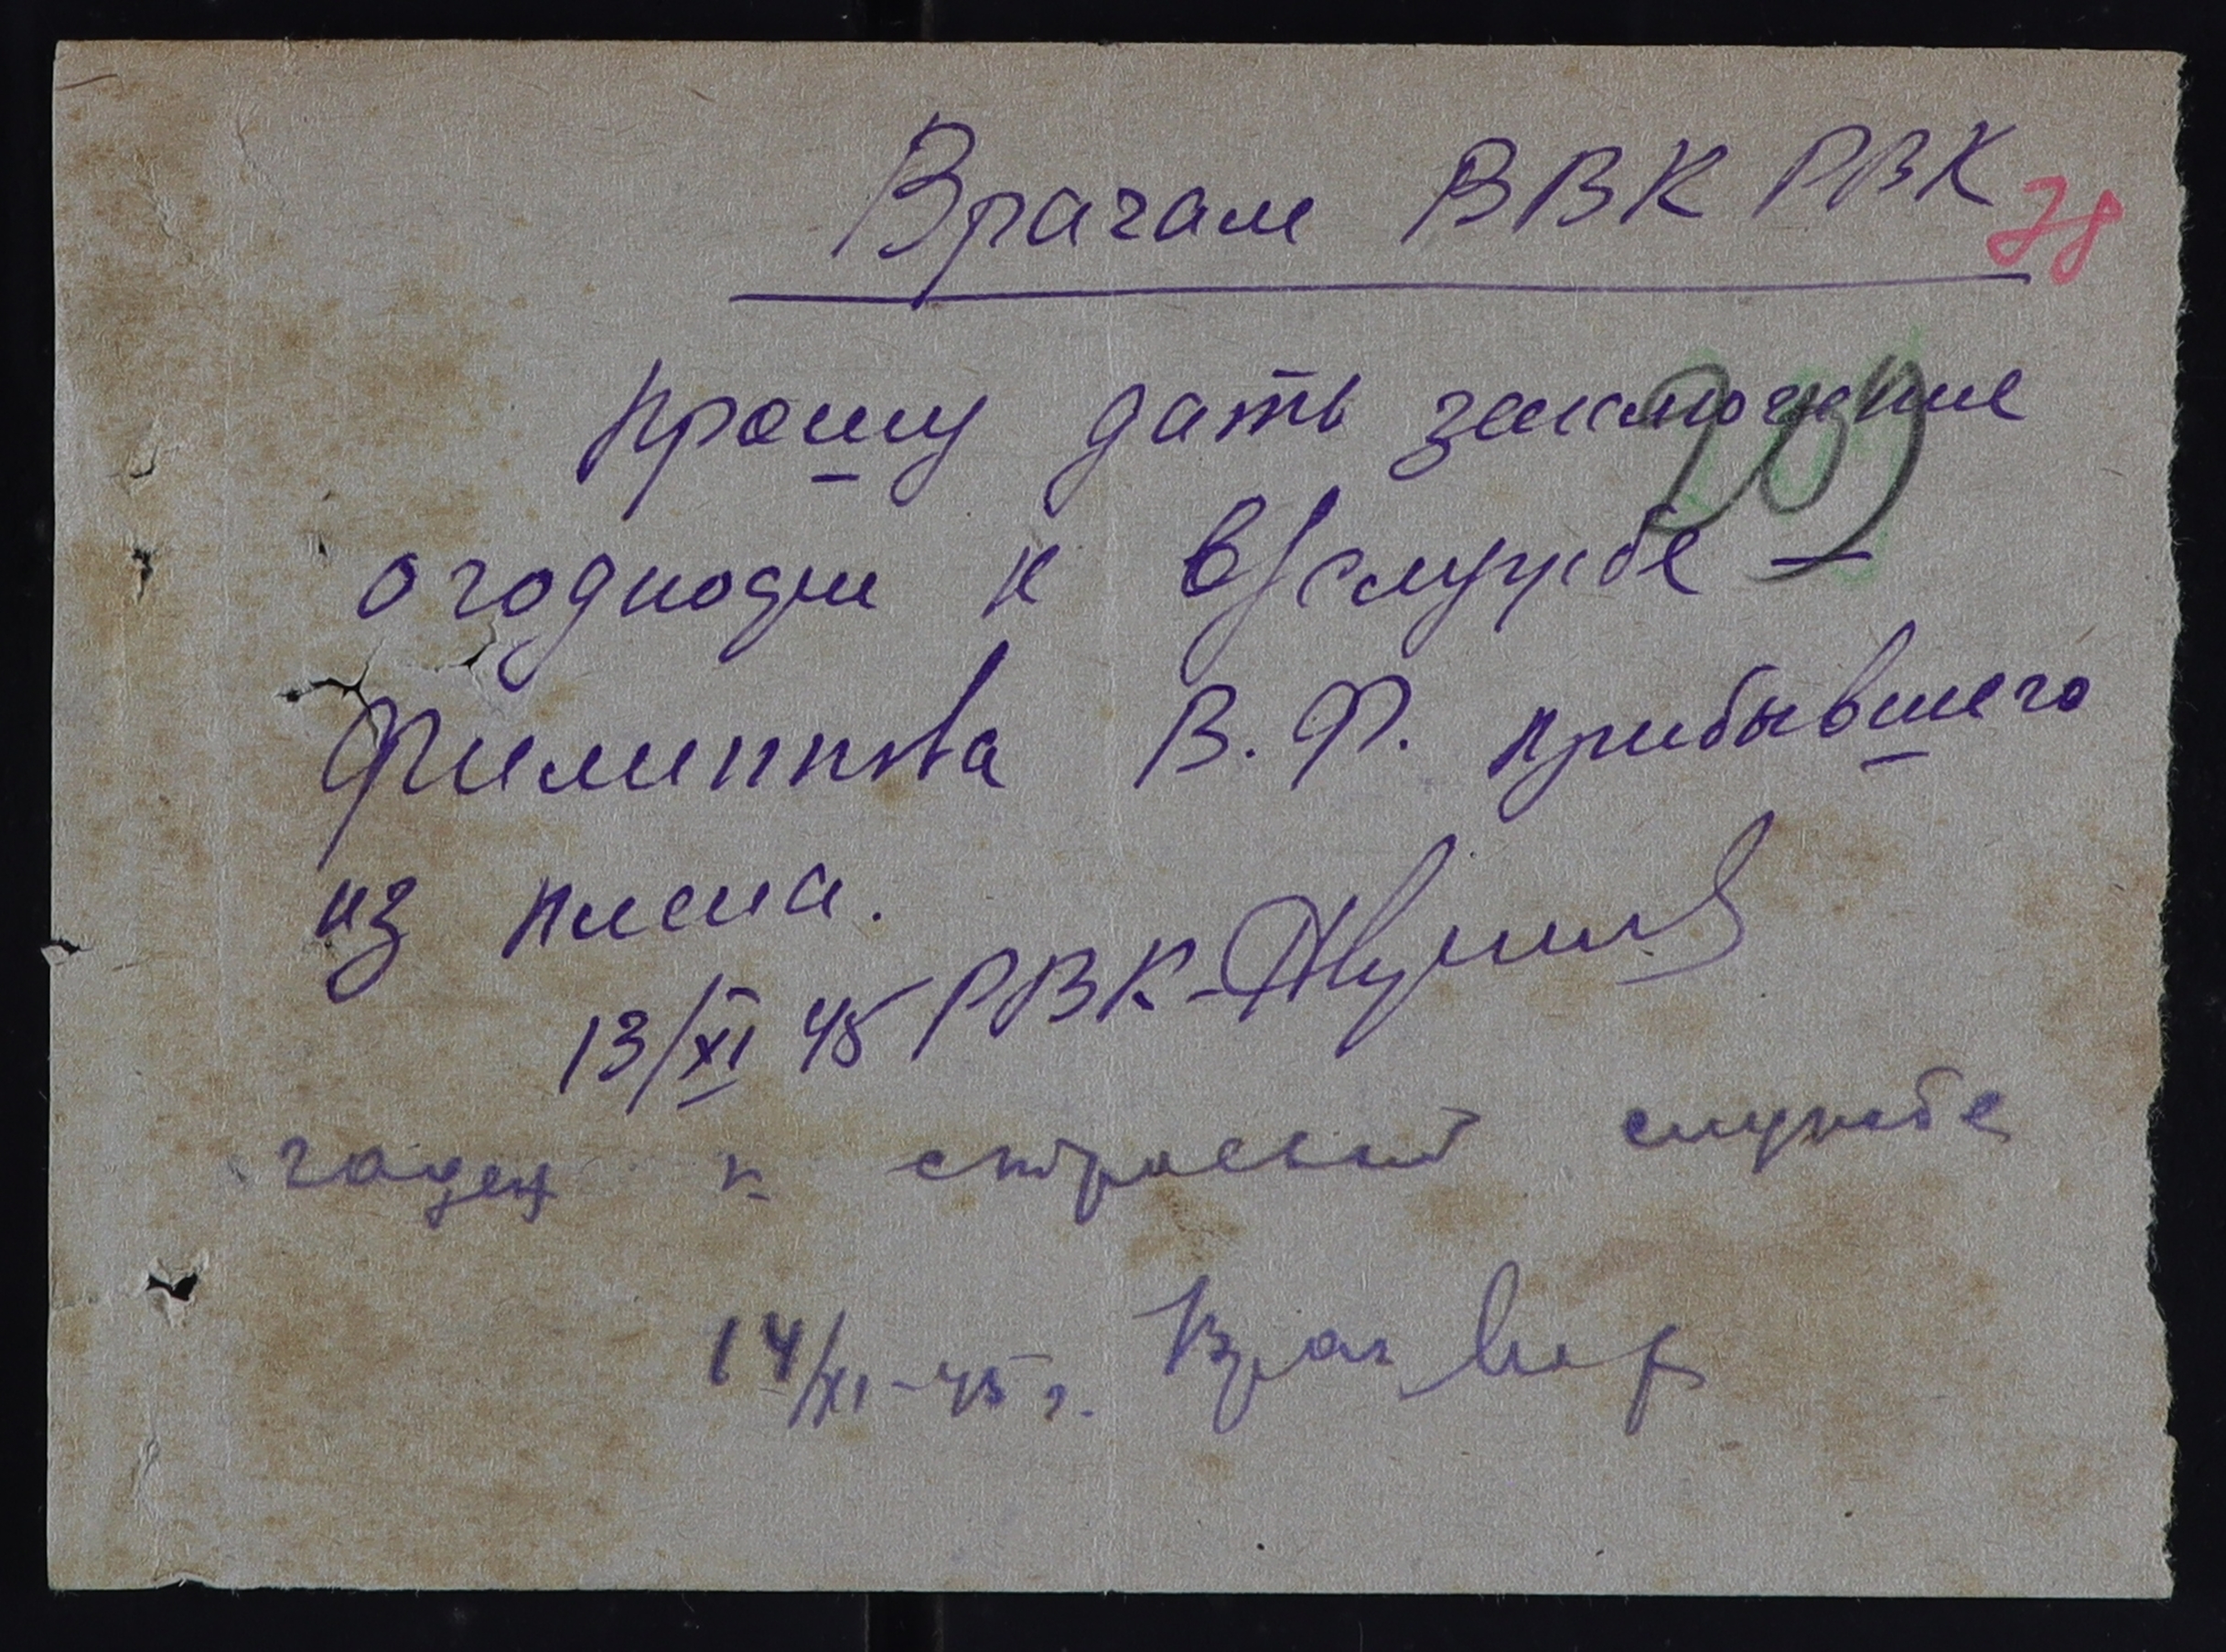 Врачам ВВК РВК
78
Прошу дать заключение
209
о годности к в/службе —
Филиппова В. Ф. прибывшего
из плена.
13/XI 45 РВК -
годен к строевой службе
14/XI - 45 г. Врач